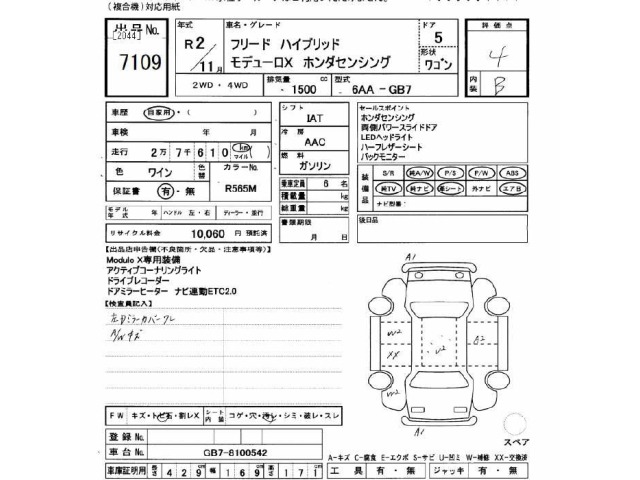 (複合機)対応用紙
出品No.
[2044]
7109
年式 R2/11月
車名・グレード
フリード ハイブリッド
モデューロX ホンダセンシング
ドア 5
形状 ワゴン
評価点 4
内装 B
2WD・4WD
排気量 1500 cc
型式 6AA-GB7
車歴 自家用・( )
シフト IAT
車検 年 月
冷房 AAC
走行 2万7千610 km マイル
燃料 ガソリン
色 ワイン
色替
カラーNo. R565M
保証書 有・無
乗車定員 6 名
積載量 kg
総重量 kg
モデル年式 年 ハンドル 左・右 ディーラー・並行
書類期限 月 日
リサイクル料金 10,060 円 預託済
セールスポイント
ホンダセンシング
両側パワースライドドア
LEDヘッドライト
ハーフレザーシート
バックモニター
装備品
S/R 純A/W P/S P/W ABS
純TV 純ナビ 革シート 外ナビ エアB
ナビ型番:
後日品
【出品店申告欄(不良箇所・欠品・注意事項等)】
Modulo X専用装備
アクティブコーナリングライト
ドライブレコーダー
ドアミラーヒーター ナビ連動ETC2.0
【検査員記入】
左ドミラーカバーズレ
A/Wキズ
A1
W2
XX
W2
W2
A2
A1
スペア
FW キズ・トビ石・割レX
シート内装 コゲ・穴・汚レ・シミ・破レ・スレ
登録No.
車台No. GB7-8100542
A-キズ C-腐食 E-エクボ S-サビ U-凹ミ W-補修 XX-交換済
車庫証明用 長さ 429cm 幅 169cm 高さ 171cm
工具 有・無 ジャッキ 有・無